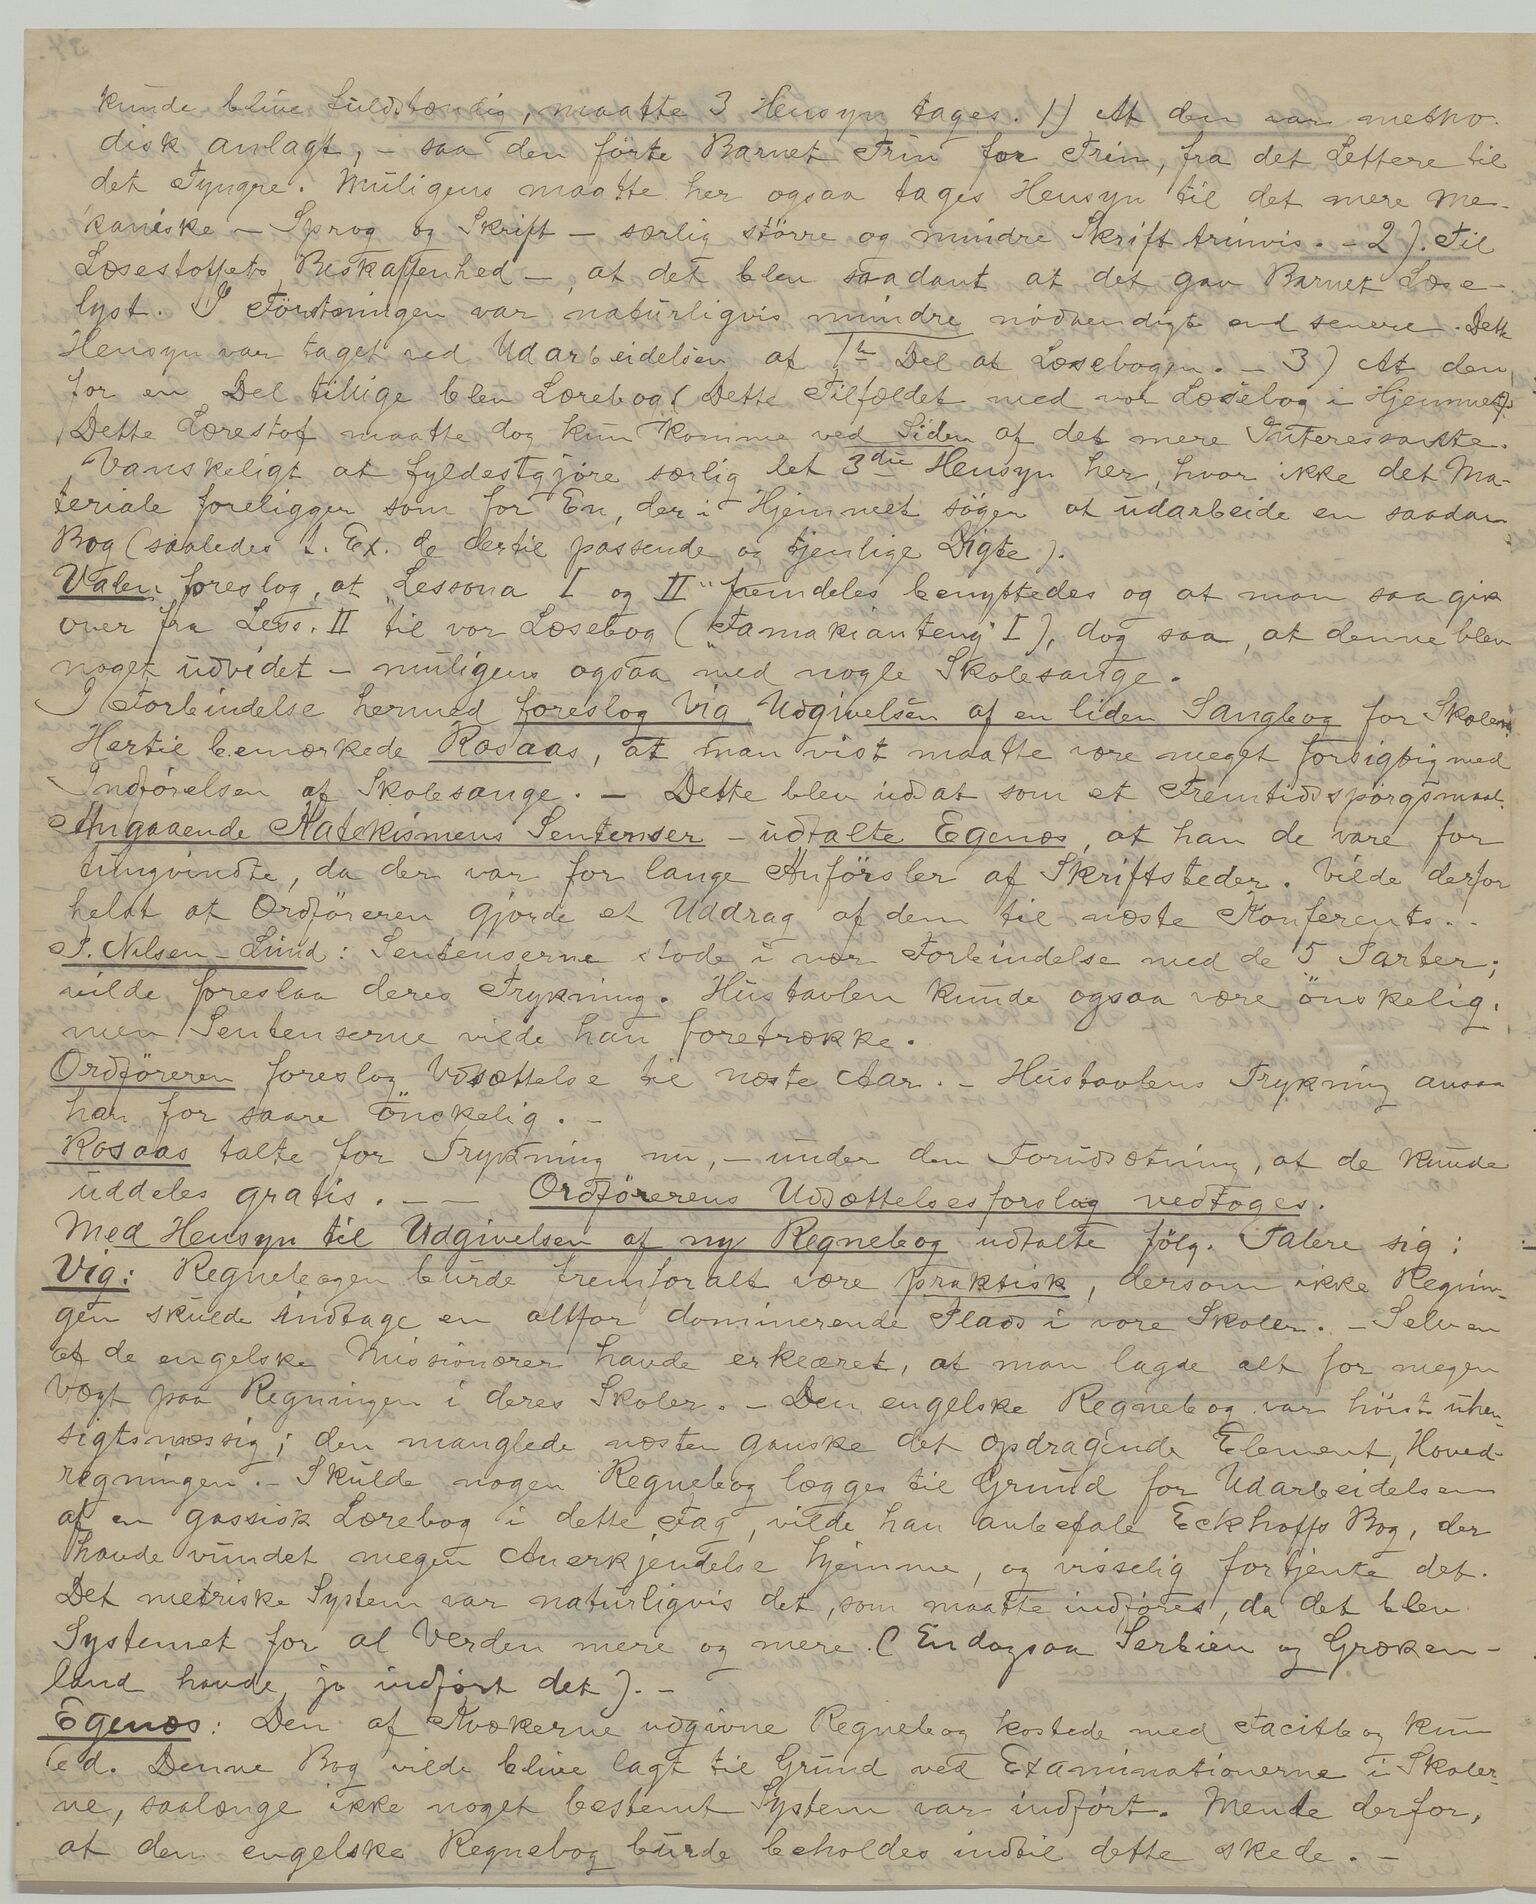 kunde blive fuldstændig, maatte 3 Hensyn tages. 1) At den var metho-
disk anlagt, – saa den förte Barnet Trin for Trin, fra det Lettere til
det Tyngre. Muligens maatte her ogsaa tages Hensyn til det mere me-
kaniske – Sprog og Skrift – særlig större og mindre Skrift trinvis. – 2). Til
Læsestoffets Beskaffenhed – at det blev saadant at det gav Barnet Læse-
lyst. I Förstningen var naturligvis mindre nödvendigt end senere. Dette
Hensyn var taget ved Udarbeidelsen af 1ste Del af Læsebogen. – 3) At den
for en Del tillige blev Lærebog (Dette Tilfældet med vor Læsebog i Hjemmet).
Dette Lærestof maatte dog kun komme ved Siden af det mere Interessante.
Vanskeligt at fyldestgjöre særlig det 3die Hensyn her, hvor ikke det Ma-
teriale foreligger som for En, der i Hjemmet söger at udarbeide en saadan
Bog (saaledes f. Ex. de dertil passende og tjenlige Digte).
Valen foreslog, at "Lessona I og II" fremdeles benyttedes og at man saa gik
over fra Less. II til vor Læsebog ("Famakianteny" I), dog saa, at denne blev
noget udvidet – muligens ogsaa med nogle Skolesange.
I Forbindelse hermed foreslog Vig Udgivelsen af en liden Sangbog for Skolerne.
Hertil bemærkede Rosaas, at man vist maatte være meget forsigtig med
Indförelsen af Skolesange. – Dette blev udsat som et Fremtidsspörgsmaal.
Angaaende Katekismens Sentenser – udtalte Egenæs, at han de vare for
tungvindte, da der var for lange Anförsler af Skriftsteder. Vilde derfor
helst at Ordföreren gjorde et Uddrag af dem til næste Konferents. –
J. Nilsen-Lund: Sentenserne stode i nær Forbindelse med de 5 Parter;
vilde foreslaa deres Trykning. Hustavlen kunde ogsaa være önskelig,
men Sentenserne vilde han foretrække.
Ordföreren foreslog Udsættelse til næste Aar. – Hustavlens Trykning ansaa
han for saare önskelig. –
Rosaas talte for Trykning nu, – under den Forudsætning, at de kunde
uddeles gratis. – – Ordförerens Udsættelsesforslag vedtoges.
Med Hensyn til Udgivelsen af ny Regnebog udtalte fölg. Talere sig:
Vig: Regnebogen burde fremforalt være praktisk, dersom ikke Regnin-
gen skulde indtage en altfor dominerende Plads i vore Skoler. – Selv en
af de engelske Missionærer havde erklæret, at man lagde alt for megen
Vægt paa Regningen i deres Skoler. – Den engelske Regnebog var höist uhen-
sigtsmæssig; den manglede næsten ganske det opdragende Element, Hoved-
regningen. – Skulde nogen Regnebog lægges til Grund for Udarbeidelsen
af en gassisk Lærebog i dette Fag, vilde han anbefale Eckhoffs Bog, der
havde vundet megen Anerkjendelse hjemme, og visselig fortjente det.
Det metriske System var naturligvis det, som maatte indföres, da det blev
Systemet for al Verden mere og mere. (Endogsaa Serbien og Græken-
land havde jo indfört det). –
Egenæs: Den af Kvækerne udgivne Regnebog kostede med Facitbog kun
6d. Denne Bog vilde blive lagt til Grund ved Examinationerne i Skoler-
ne, saalænge ikke noget bestemt System var indfört. Mente derfor,
at den engelske Regnebog burde beholdes indtil dette skede. –